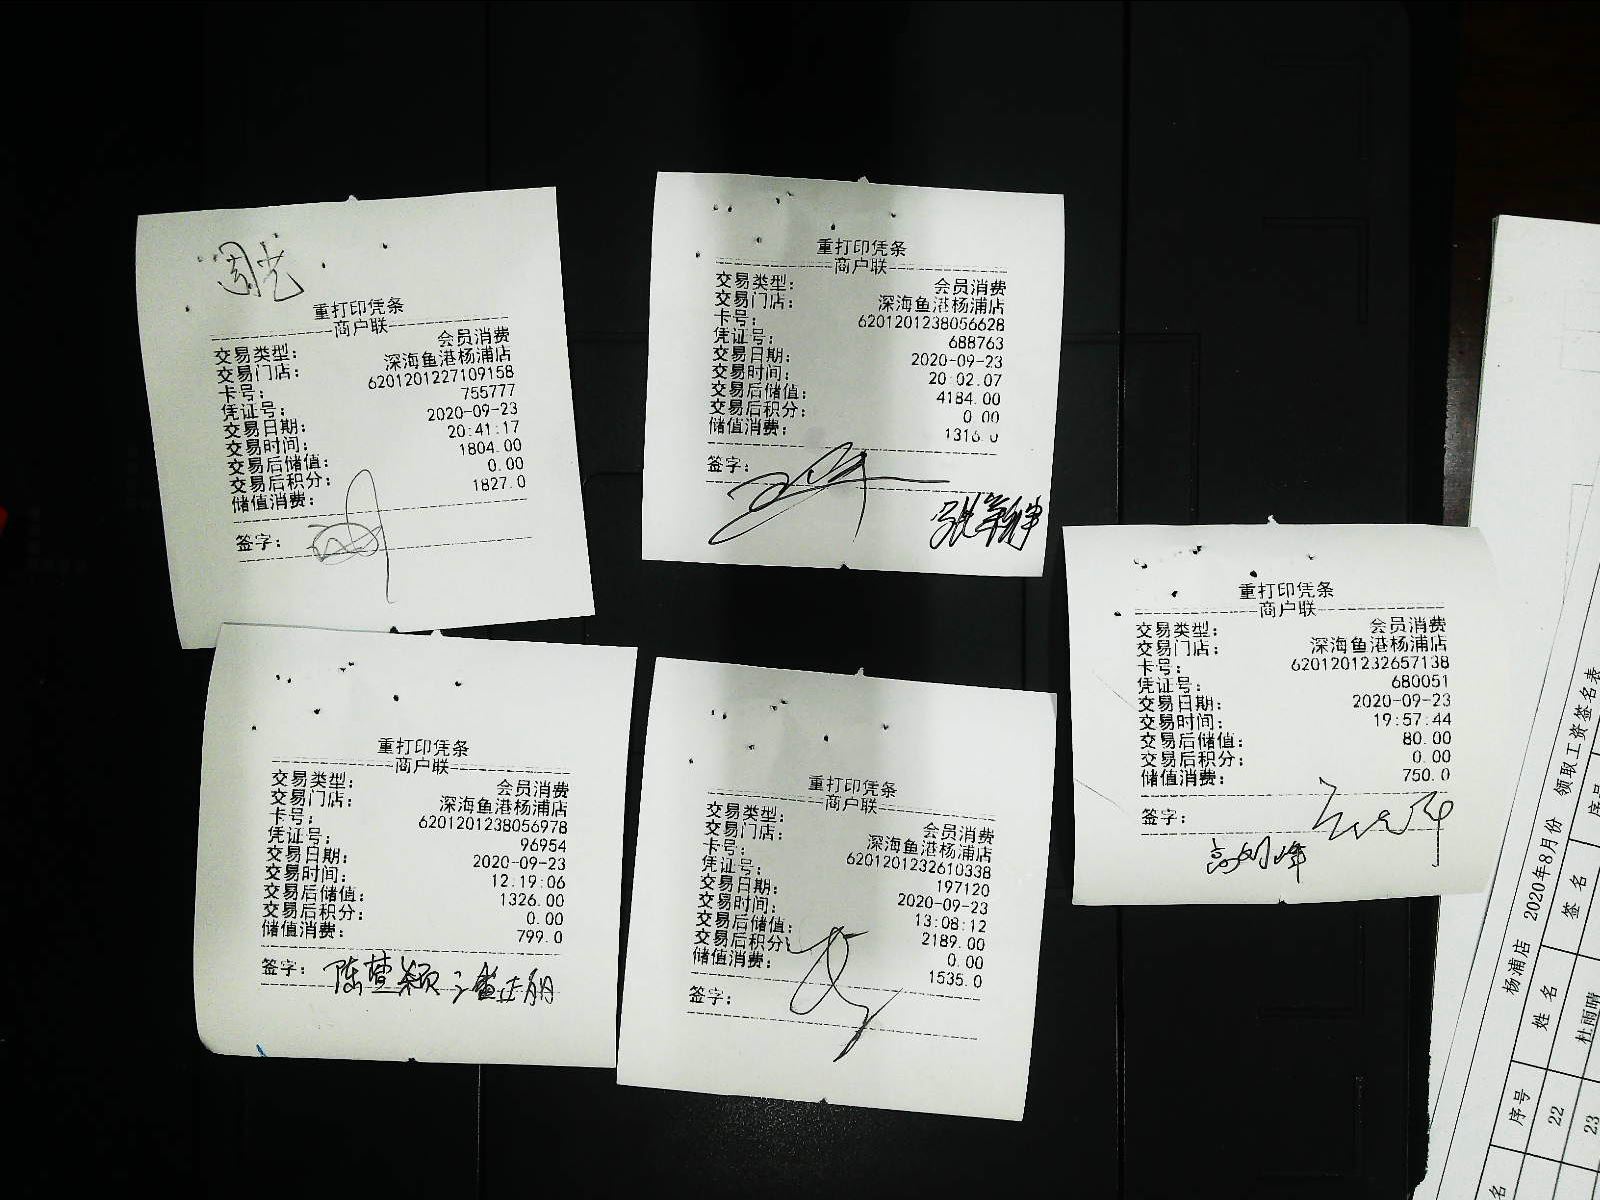 周光
重打印凭条
商户联
交易类型： 会员消费
交易门店： 深海鱼港杨浦店
卡号： 6201201227109158
凭证号： 755777
交易日期： 2020-09-23
交易时间： 20:41:17
交易后储值： 1804.00
交易后积分： 0.00
储值消费： 1827.0
签字：
重打印凭条
商户联
交易类型： 会员消费
交易门店： 深海鱼港杨浦店
卡号： 6201201238056628
凭证号： 688763
交易日期： 2020-09-23
交易时间： 20:02:07
交易后储值： 4184.00
交易后积分： 0.00
储值消费： 1316.0
签字：
重打印凭条
商户联
交易类型： 会员消费
交易门店： 深海鱼港杨浦店
卡号： 6201201232657138
凭证号： 680051
交易日期： 2020-09-23
交易时间： 19:57:44
交易后储值： 80.00
交易后积分： 0.00
储值消费： 750.0
签字：
重打印凭条
商户联
交易类型： 会员消费
交易门店： 深海鱼港杨浦店
卡号： 6201201238056978
凭证号： 96954
交易日期： 2020-09-23
交易时间： 12:19:06
交易后储值： 1326.00
交易后积分： 0.00
储值消费： 799.0
签字：
重打印凭条
商户联
交易类型： 会员消费
交易门店： 深海鱼港杨浦店
卡号： 6201201232610338
凭证号： 197120
交易日期： 2020-09-23
交易时间： 13:08:12
交易后储值： 2189.00
交易后积分： 0.00
储值消费： 1535.0
签字：
杨浦店 2020年8月份 领取工资签名表
序号 姓名 签名 序号
22 杜雨晴
23
名